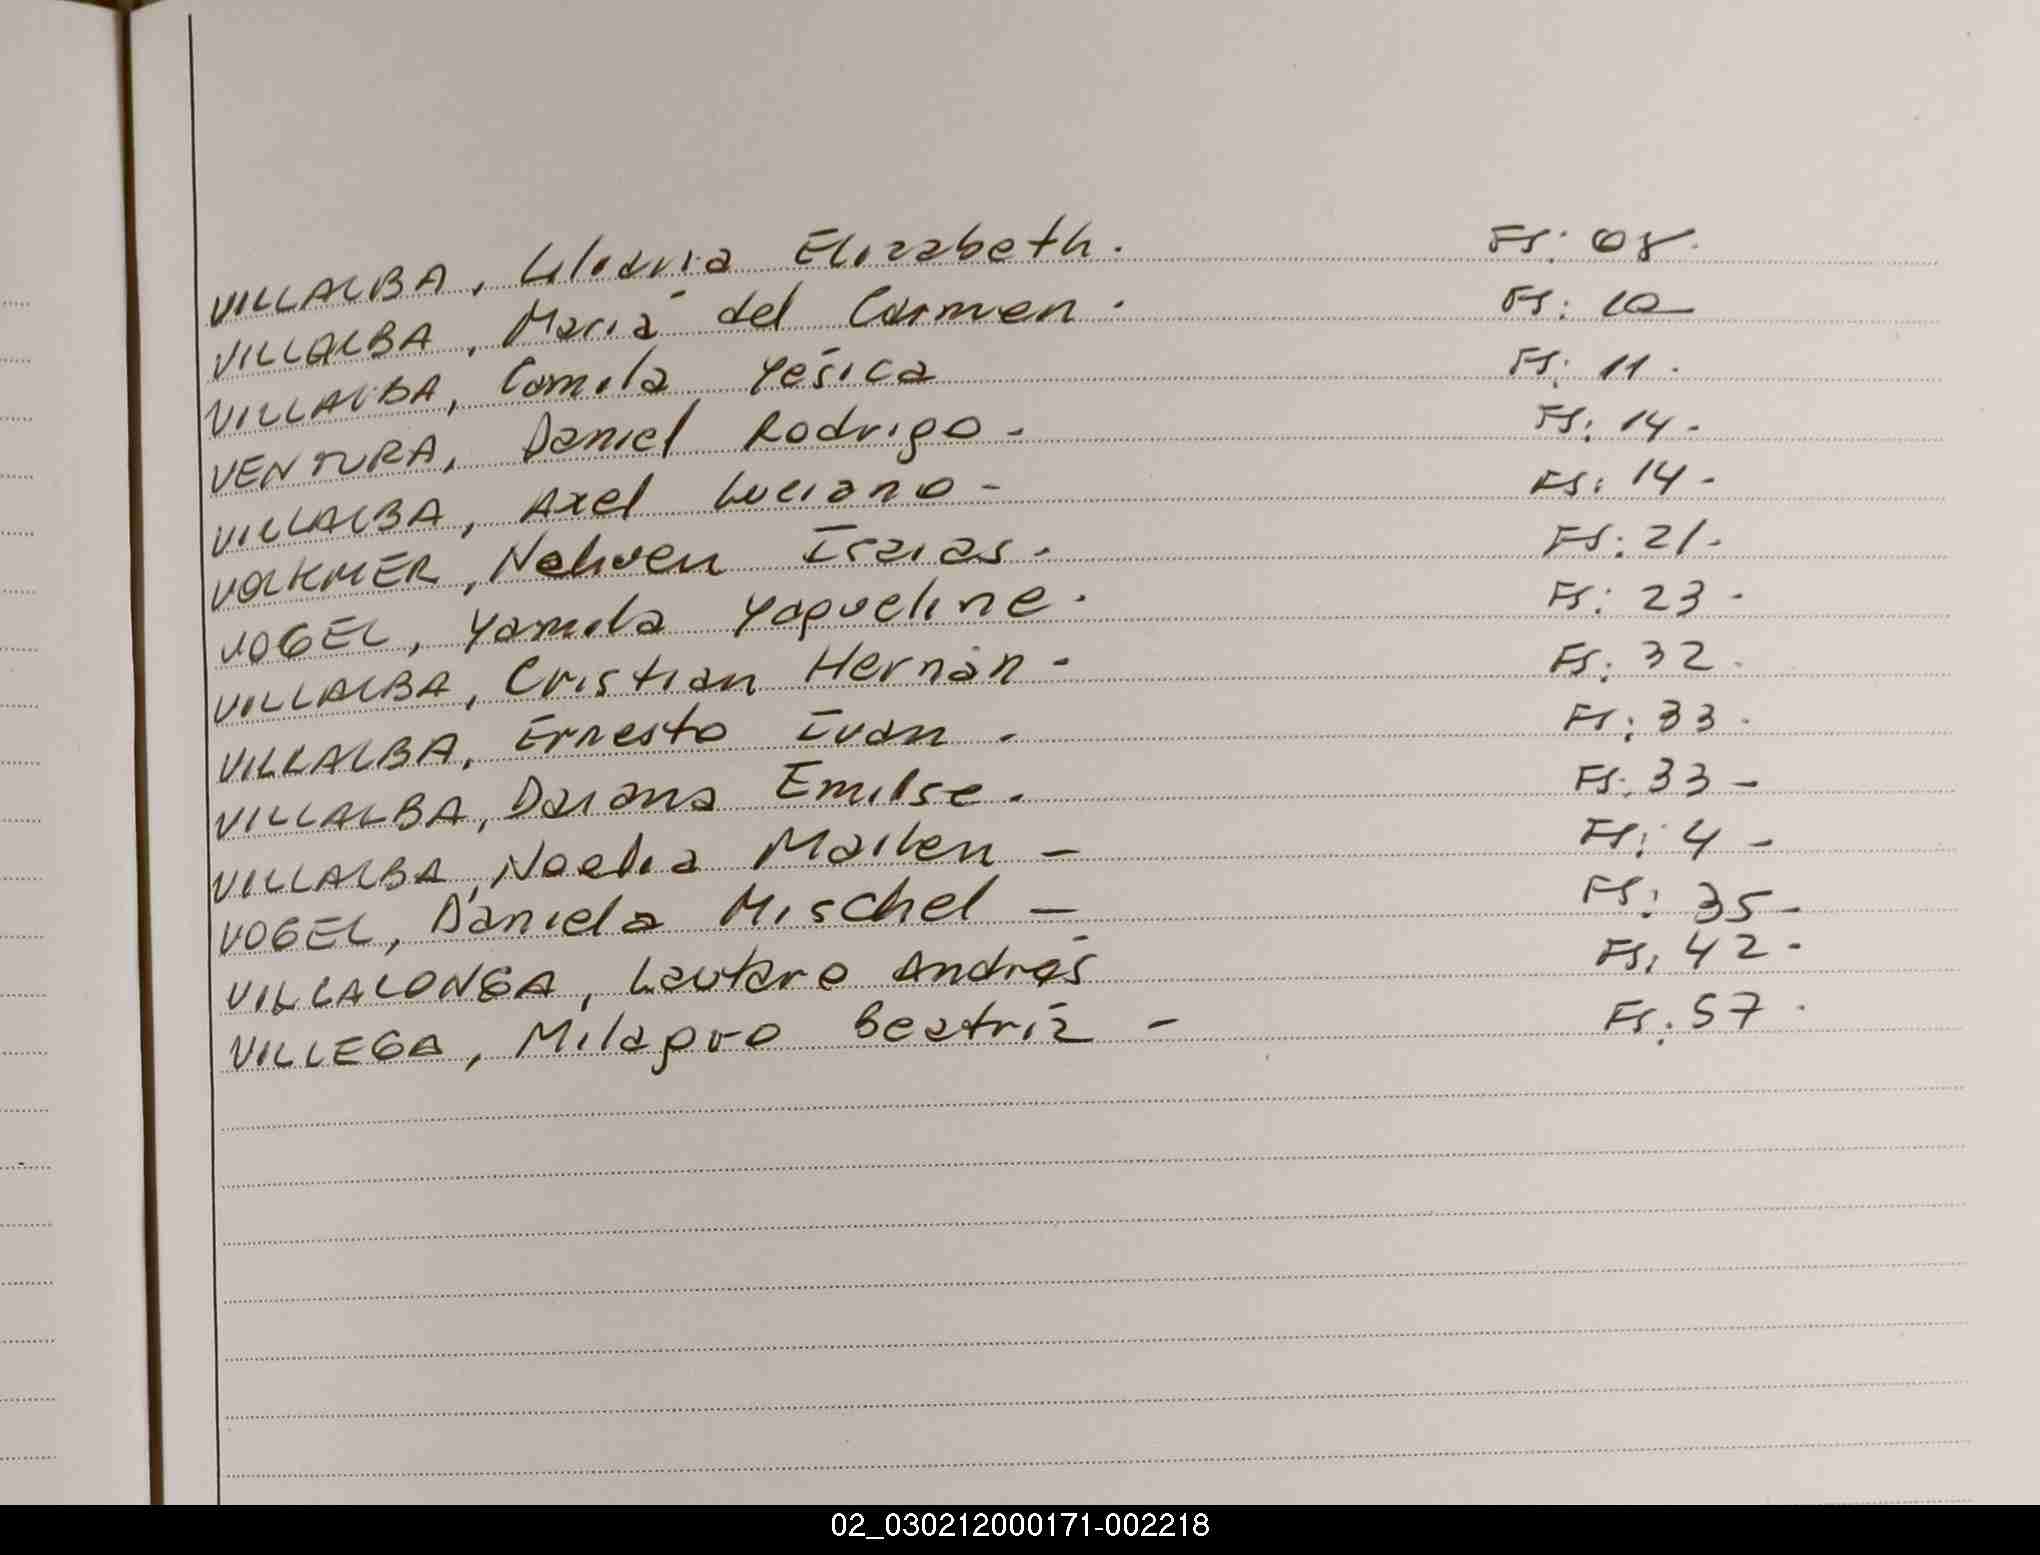 VILLALBA, Elizabeth. Fs: 08.
VILLALBA, María del Carmen. Fs: 10
VILLALBA, Camila Yésica Fs: 11.
VENTURA, Daniel Rodrigo - Fs: 14.
VILLALBA, Axel Luciano - Fs: 14 -
VOLKMER, Nehuen Isaias. Fs: 21.
VOGEL, Yamila Yaqueline. Fs: 23.
VILLALBA, Cristian Hernán - Fs: 32.
VILLALBA, Ernesto Ivan - Fs: 33.
VILLALBA, Daiana Emilse. Fs: 33 -
VILLALBA, Noelia Mailen - Fs: 4 -
VOGEL, Daniela Mischel - Fs: 35 -
VILLALONGA, Lautaro Andrés Fs: 42 -
VILLEGA, Milagro Beatríz - Fs: 57.
02_030212000171-002218